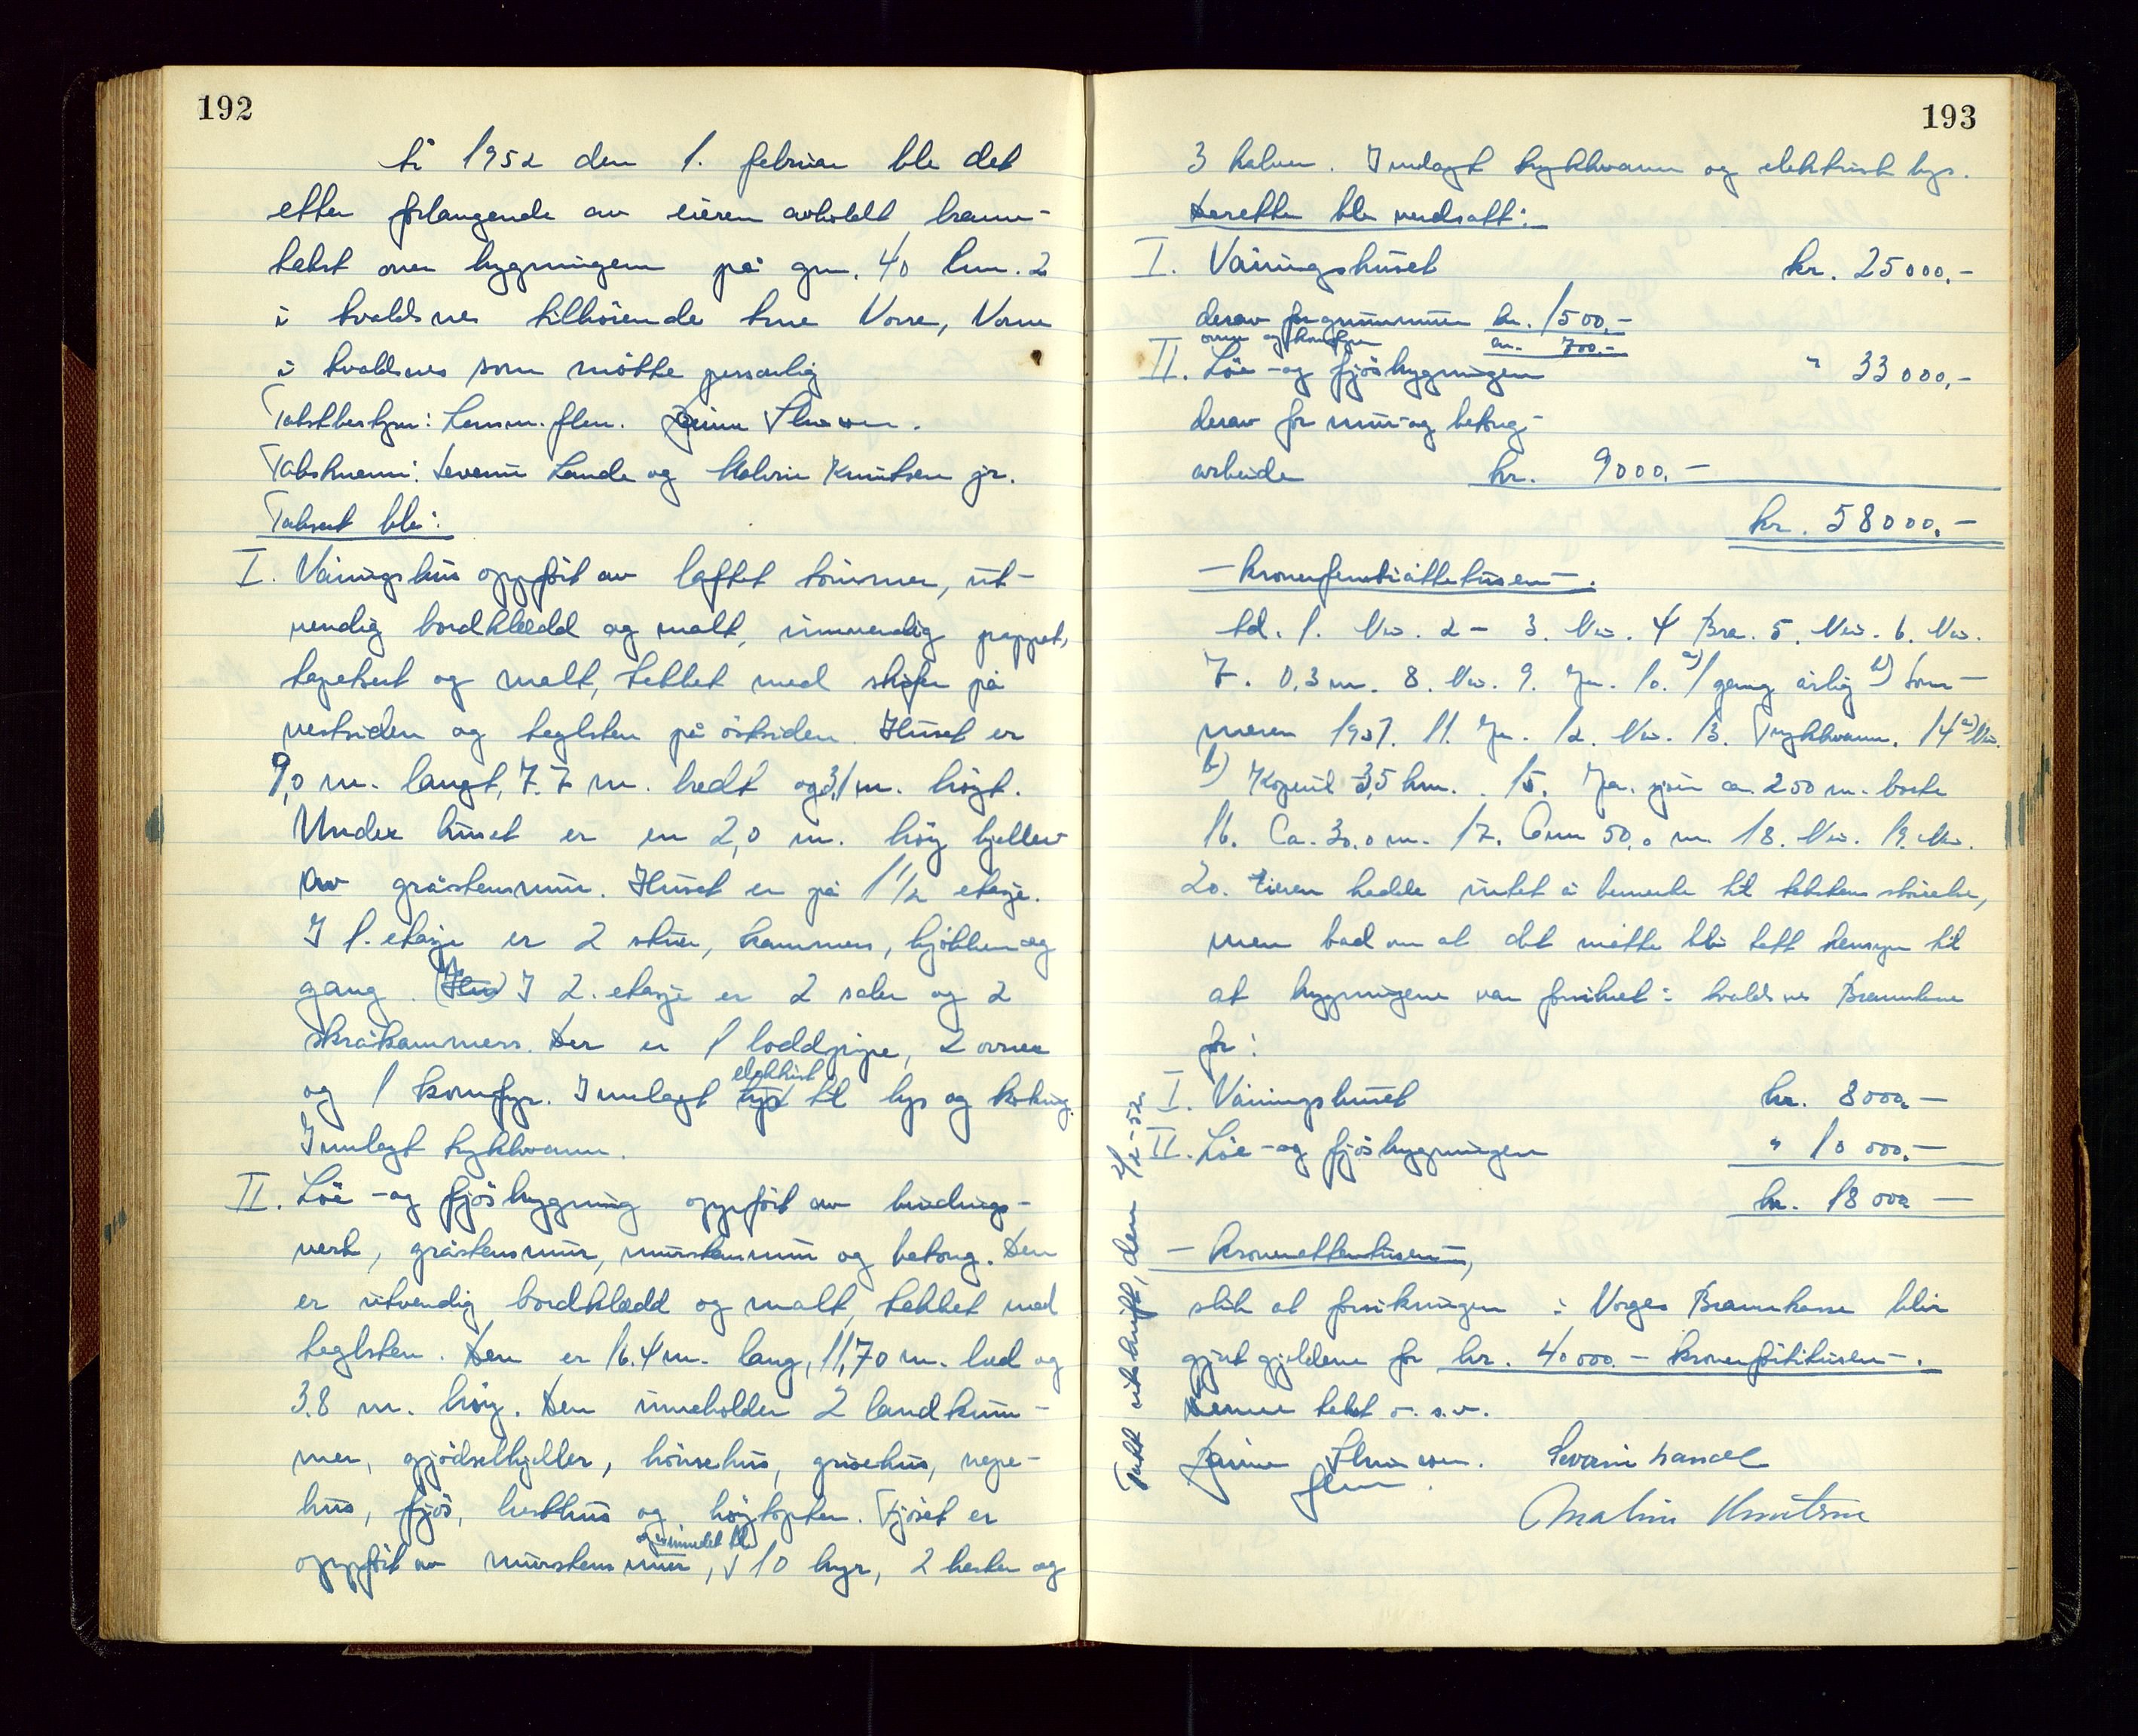 192
År 1952 den 1. februar ble det
etter forlangende av eieren avholdt brann-
takst over bygningene på gnr. 40 bnr. 2
i Avaldsnes tilhørende Arne Vorre, Vorre
i Avaldsnes som møtte personlig
Takstbestyrer: Lensm. flm.
Takstmenn: Severin Lande og Malvin Knutsen jr.
Taksert ble:
I. Våningshus oppført av laftet tømmer, ut-
vendig bordkledd og malt, innvendig pappet,
tapetsert og malt, tekket med skifer på
vestsiden og teglsten på østsiden. Huset er
9,0 m. langt, 7.7 m. bredt og 3,1 m. høgt.
Under huset er en 2,0 m. høg kjeller
av gråstensmur. Huset er på 1 1/2 etasje.
I 1. etasje er 2 stuer, kammers, kjøkken og
gang. I 2. etasje er 2 saler og 2
skråkammers. Der er 1 loddpipe, 2 ovner
og 1 komfyr. Innlagt elektrisk til lys og koking.
Innlagt trykkvann.
II. Løe - og fjøsbygning oppført av bindings-
verk, gråstensmur, murstensmur og betong. Den
er utvendig bordkledd og malt, tekket med
teglsten. Den er 16.4 m. lang, 11,70 m. bred og
3.8 m. høg. Den inneholder 2 landkum-
mer, gjødselkjeller, hønsehus, grisehus, nepe-
hus, fjøs, hesthus og høytopter. Fjøset er
oppført av murstensmur, og innredet til 10 kyr, 2 hester og
193
3 kalver. Innlagt trykkvann og elektrisk lys.
Deretter ble verdsatt:
I. Våningshuset kr. 25000.-
derav for grunnmur kr. 1500.-
ovner og komfyrer kr. 700.-
II. Løe - og fjøsbygningen " 33000,-
derav for mur- og betong-
arbeide kr. 9000.-
kr. 58000.-
- kronerfemtiåttetusen -.
Ad. 1. Nei. 2 - 3. Nei. 4 Bra. 5. Nei. 6. Nei.
7. 0.3 m. 8. Nei. 9. Ja. 10. a) 1 gang årlig b) Som-
meren 1951. 11. Ja. 12. Nei. 13. Trykkvann. 14 a) Nei.
b) Kopervik 3,5 km. 15. Ja. sjøen ca. 200 m. borte
16. Ca. 30.0 m. 17. Over 50,0 m. 18. Nei. 19. Nei.
20. Eieren hadde intet å bemerke til takstens størrelse,
men bad om at det måtte bli tatt hensyn til
at bygningene var forsikret i Avaldsnes Brannkasse
for:
I. Våningshuset kr. 8000,-
II. Løe - og fjøsbygningen " 10 000.-
kr. 18 000 -
- kroneratten tusen -,
slik at forsikringen i Norges Brannkasse blir
gjort gjeldene for kr. 40 000.- kronerførtitusen -.
Denne takst o. s. v.
Severin Lande
flm.
Malvin Knutsen
Tatt utskrift, den 2/2-52.